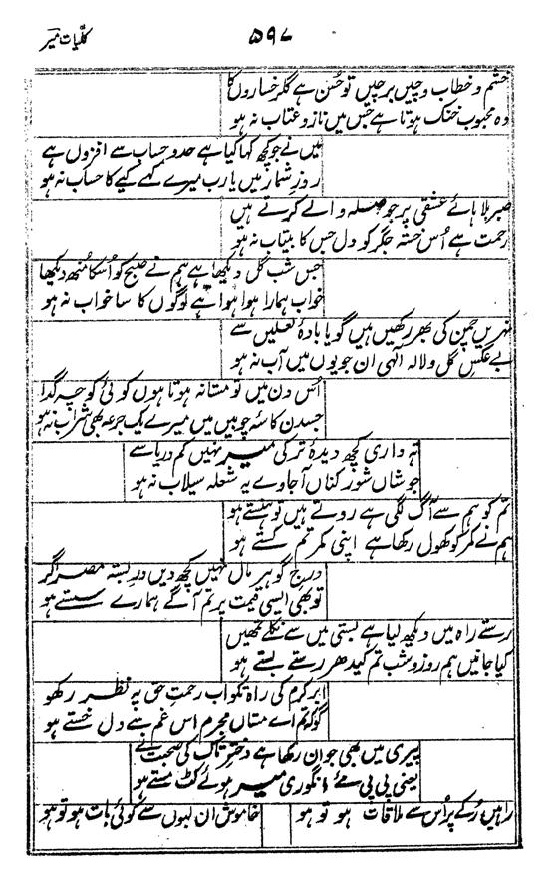 کلیات میر
۵۹۷
خشم و خطاب و چیں برچیں تو حسن ہے گلرخساروں کا
وہ محبوب خنک ہوتا ہے جس میں ناز و عتاب نہ ہو
میں نے جو کچھ کہا کیا ہے حد و حساب سے افزوں ہے
روز شمار میں یارب میرے کہے کیے کا حساب نہ ہو
صبر بلا ہائے عشقی پر جو حوصلہ والے کرتے ہیں
رحمت ہے اُس خستہ جگر کو دل جس کا بیتاب نہ ہو
جس شب گل دیکھا ہے ہم نے صبح کو اُسکا منھ دیکھا
خواب ہمارا ہوا ہوا ہے لوگوں کا سا خواب نہ ہو
نہریں چمن کی بھر رکھیں ہیں گویا بادۂ لعلیں سے
بے عکس گل و لالہ الٰہی ان جویوں میں آب نہ ہو
اُس دن میں تو مستانہ ہوتا ہوں کوئی کوچہ گدا
جسدن کاسۂ چوبیں میں میرے یک جرعہ بھی شراب نہ ہو
تہ داری کچھ دیدۂ تر کی میر نہیں کم دریا سے
جوشاں شور کناں آجاوے یہ شعلہ سیلاب نہ ہو
تم کو ہم سے آگ لگی ہے روتے ہیں تو ہنستے ہو
ہم نے کمر کو کھول رکھا ہے اپنی کمر تم کستے ہو
درج گوہر مال نہیں کچھ دیں در بستہ مصر اگر
تو بھی ایسی قیمت پر تم آگے ہمارے سستے ہو
رستے راہ میں دیکھ لیا ہے بستی میں سے نکلے تمھیں
کیا جانیں ہم روز و شب تم کیدھر رستے بستے ہو
ابر کرم کی راہ تکو اب رحمت حق پہ نظر رکھو
گو کہ تم اے مستاں مجرم اس غم سے دل خستے ہو
پیری میں بھی جوان رکھا ہے دختر تاک کی صحبت نے
یعنی پی پی مے انگوری میر ہوئے کٹ مستے ہو
راہیں رُکے پر اُس سے ملاقات ہو تو ہو
خاموش ان لبوں سے کوئی بات ہو تو ہو